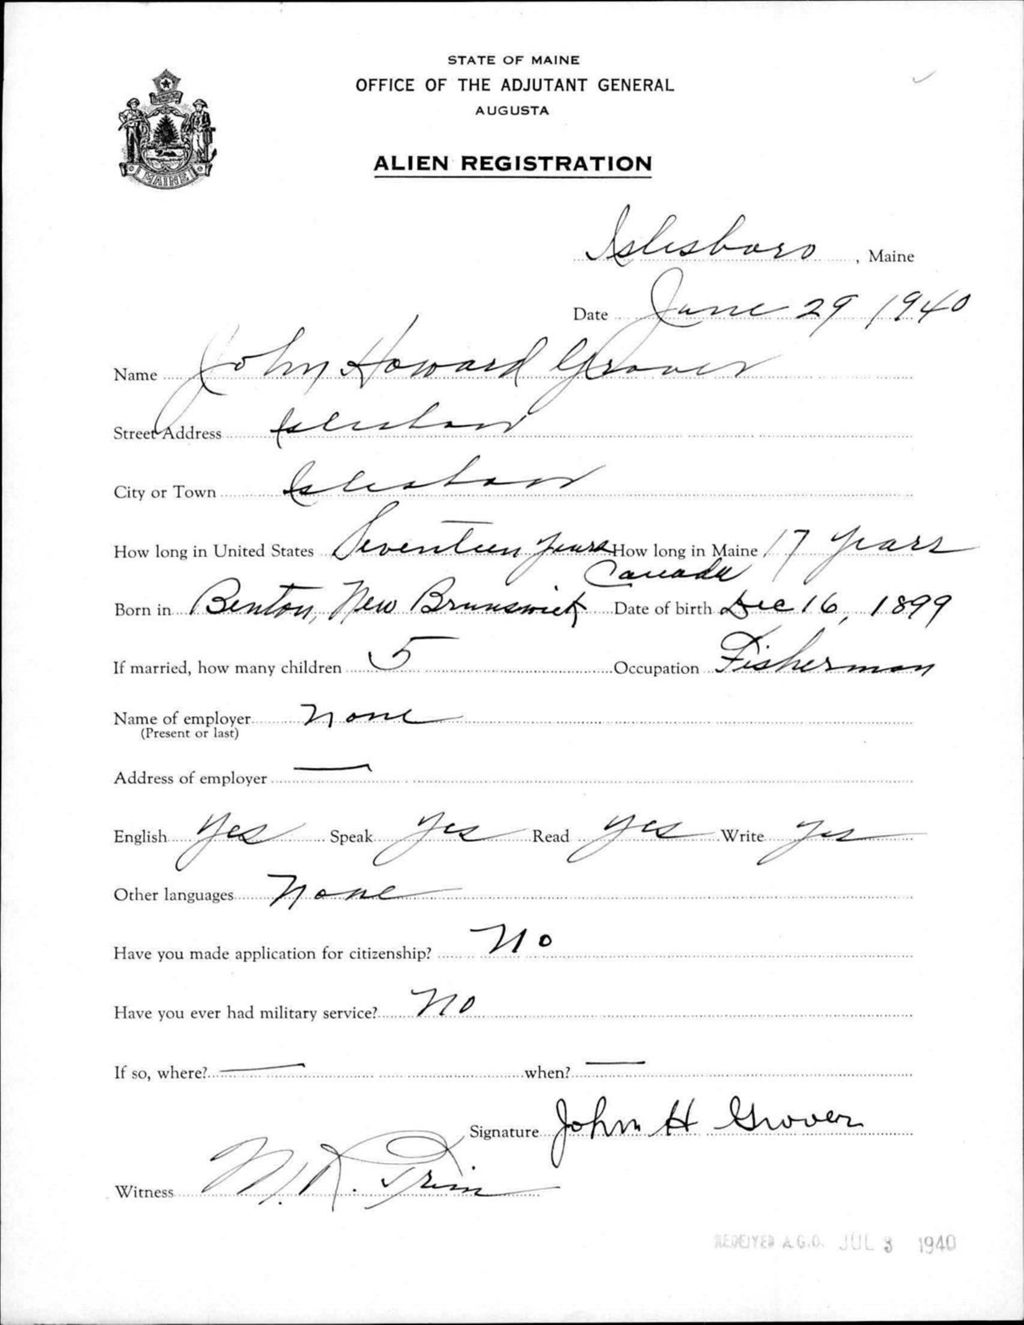 STATE OF MAINE
OFFICE OF THE ADJUTANT GENERAL
AUGUSTA
ALIEN REGISTRATION
MAINE
Islesboro, Maine
Date June 29 1940
Name John Howard Grover
Street Address Islesboro
City or Town Islesboro
How long in United States Seventeen years How long in Maine 17 years
Canada
Born in Benton, New Brunswick Date of birth Dec 16, 1899
If married, how many children 5 Occupation Fisherman
Name of employer None
(Present or last)
Address of employer —
English Yes Speak Yes Read Yes Write Yes
Other languages None
Have you made application for citizenship? No
Have you ever had military service? No
If so, where? — when? —
Signature John H Grover
Witness M. R. Trim
RECEIVED A.G.O. JUL 3 1940